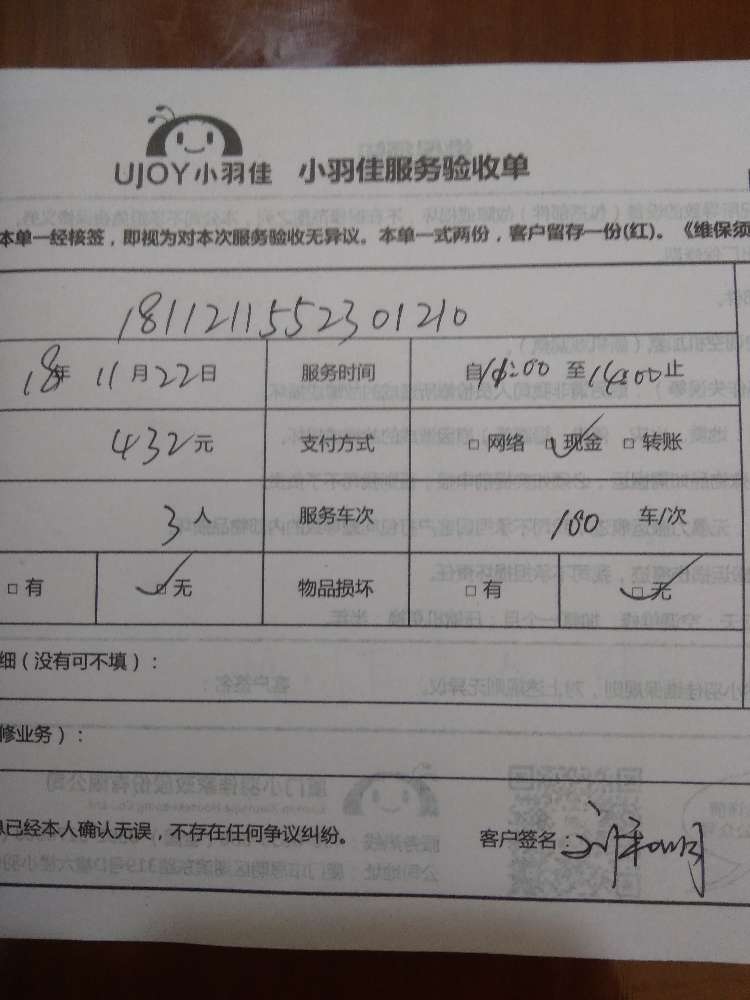 UJOY小羽佳 小羽佳服务验收单
本单一经接签，即视为对本次服务验收无异议。本单一式两份，客户留存一份(红)。《维保须
1811211552301210
18年 11月22日 服务时间 自14:00 至14:00止
432元 支付方式 □ 网络 ☑ 现金 □ 转账
3人 服务车次 180 车/次
□ 有 ☑ 无 物品损坏 □ 有 ☑ 无
细（没有可不填）：
修业务）：
息已经本人确认无误，不存在任何争议纠纷。 客户签名：